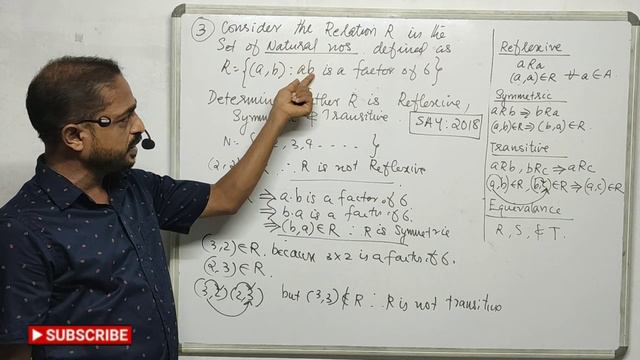 ③ Consider the Relation R in the
Set of Natural nos defined as
R = {(a, b) : ab is a factor of 6}
Determine ther R is Reflexive,
Symme & Transitive.
SAY: 2018
N = { 2, 3, 4 . . . . . }
∴ R is not Reflexive
⇒ a.b is a factor of 6
⇒ b.a is a factor of 6.
⇒ (b,a) ∈ R ∴ R is Symmetric
(3,2) ∈ R. because 3 x 2 is a factor of 6.
(2,3) ∈ R.
(3,2) (2,3) but (3,3) ∉ R ∴ R is not transitive
Reflexive
aRa
(a,a) ∈ R ∀ a ∈ A.
Symmetric
aRb ⇒ bRa
(a,b) ∈ R ⇒ (b,a) ∈ R.
Transitive
aRb, bRc ⇒ aRc
(a,b) ∈ R, (b,c) ∈ R ⇒ (a,c) ∈ R
Equivalance
R, S, & T.
SUBSCRIBE